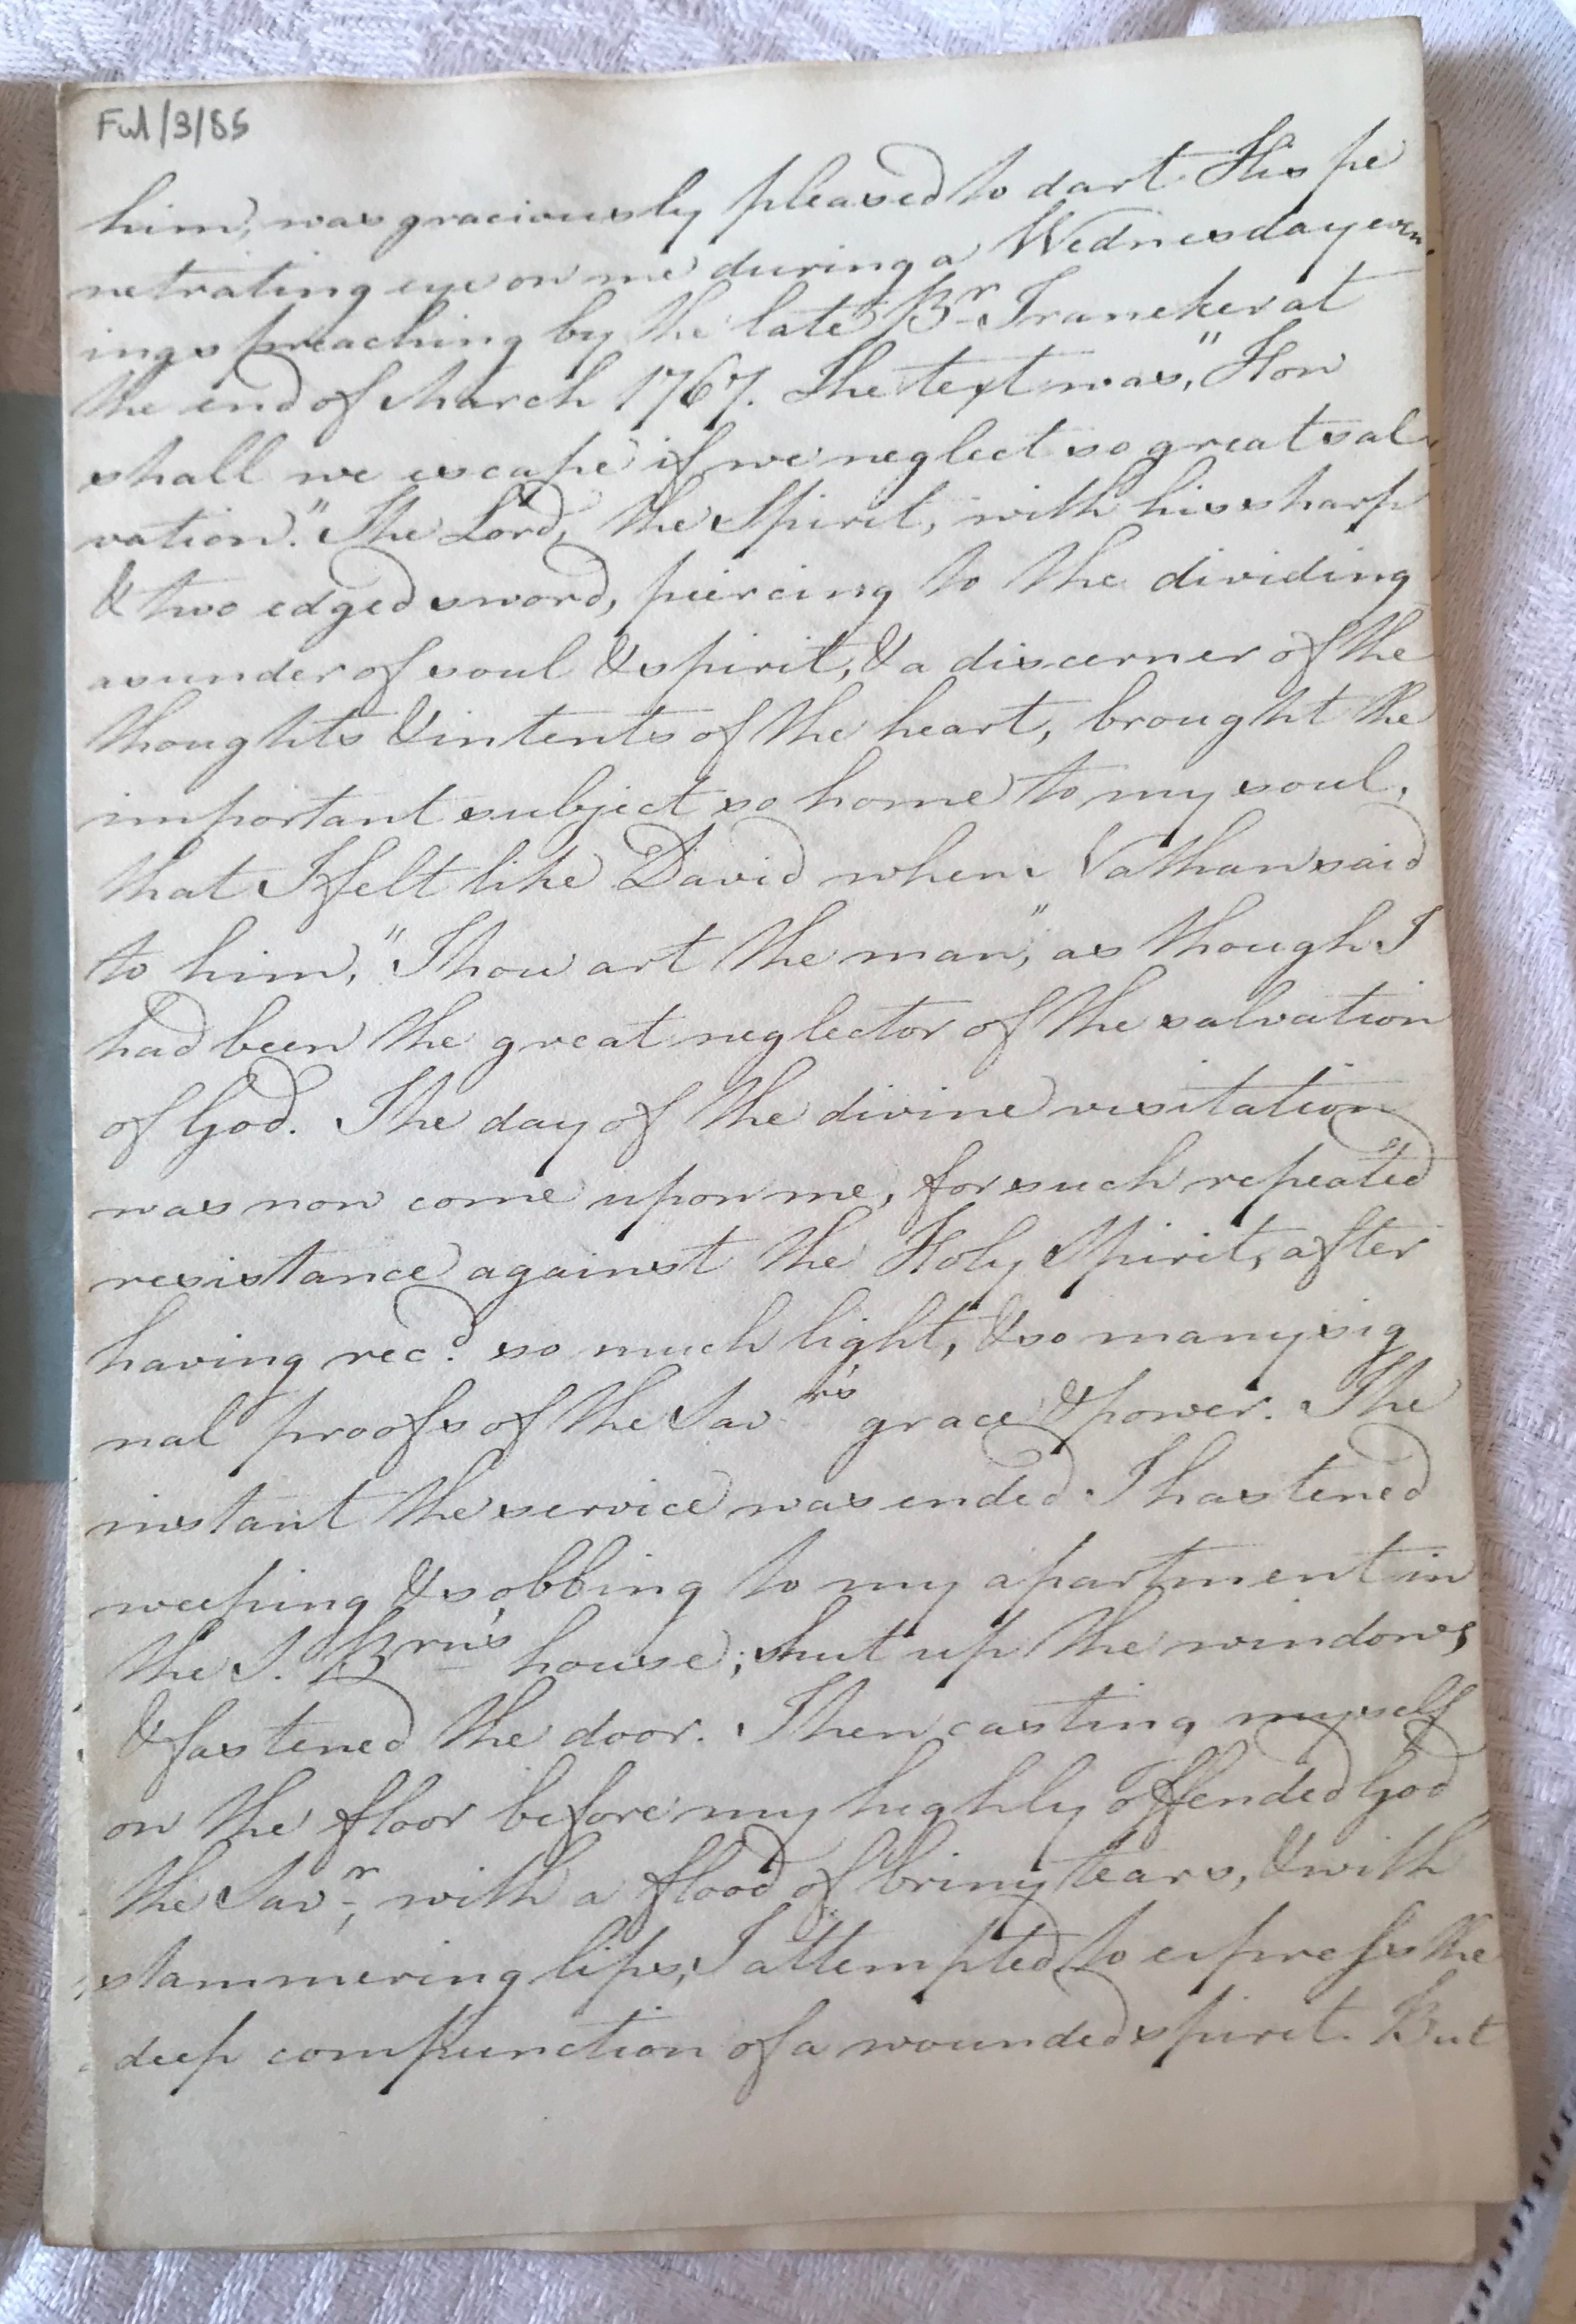 Ful/3/85
him, was graciously pleased to dart His pe
netrating eye on me during a Wednesday even
ings preaching by the late Br Traneker at
the end of March 1767. The text was, "How
shall we escape if we neglect so great sal
vation." The Lord, the Spirit, with his sharp
& two edged sword, piercing to the dividing
asunder of soul & spirit, & a discerner of the
thoughts & intents of the heart, brought the
important subject so home to my soul,
that I felt like David when Nathan said
to him, "Thou art the man," as though I
had been the great neglector of the salvation
of God. The day of the divine visitation
was now come upon me, for such repeated
resistance against the Holy Spirit, after
having recd. so much light, & so many sig
nal proofs of the Savr's grace & power. The
instant the service was ended I hastened
weeping & sobbing to my apartment in
the S. Brn's house; shut up the windows
& fastened the door. Then casting myself
on the floor before my highly offended God
the Savr, with a flood of briny tears, & with
stammering lips, I attempted to express the
deep compunction of a wounded spirit. But